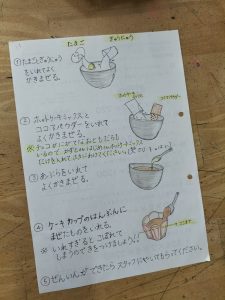 たまご ぎゅうにゅう
①たまごとぎゅうにゅう
をいれてよく
かきまぜる。
ホットケーキミックス
ココアパウダー
②ホットケーキミックスと
ココアパウダーをいれて
よくかきまぜる。
③あぶらをいれて
よくかきまぜる。
④ケーキカップのはんぶんに
まぜたものをいれる。
※いれすぎると こぼれて
しまうのできをつけましょう!!
⑤ぜんいんができたら スタッフにやいてもらってください。